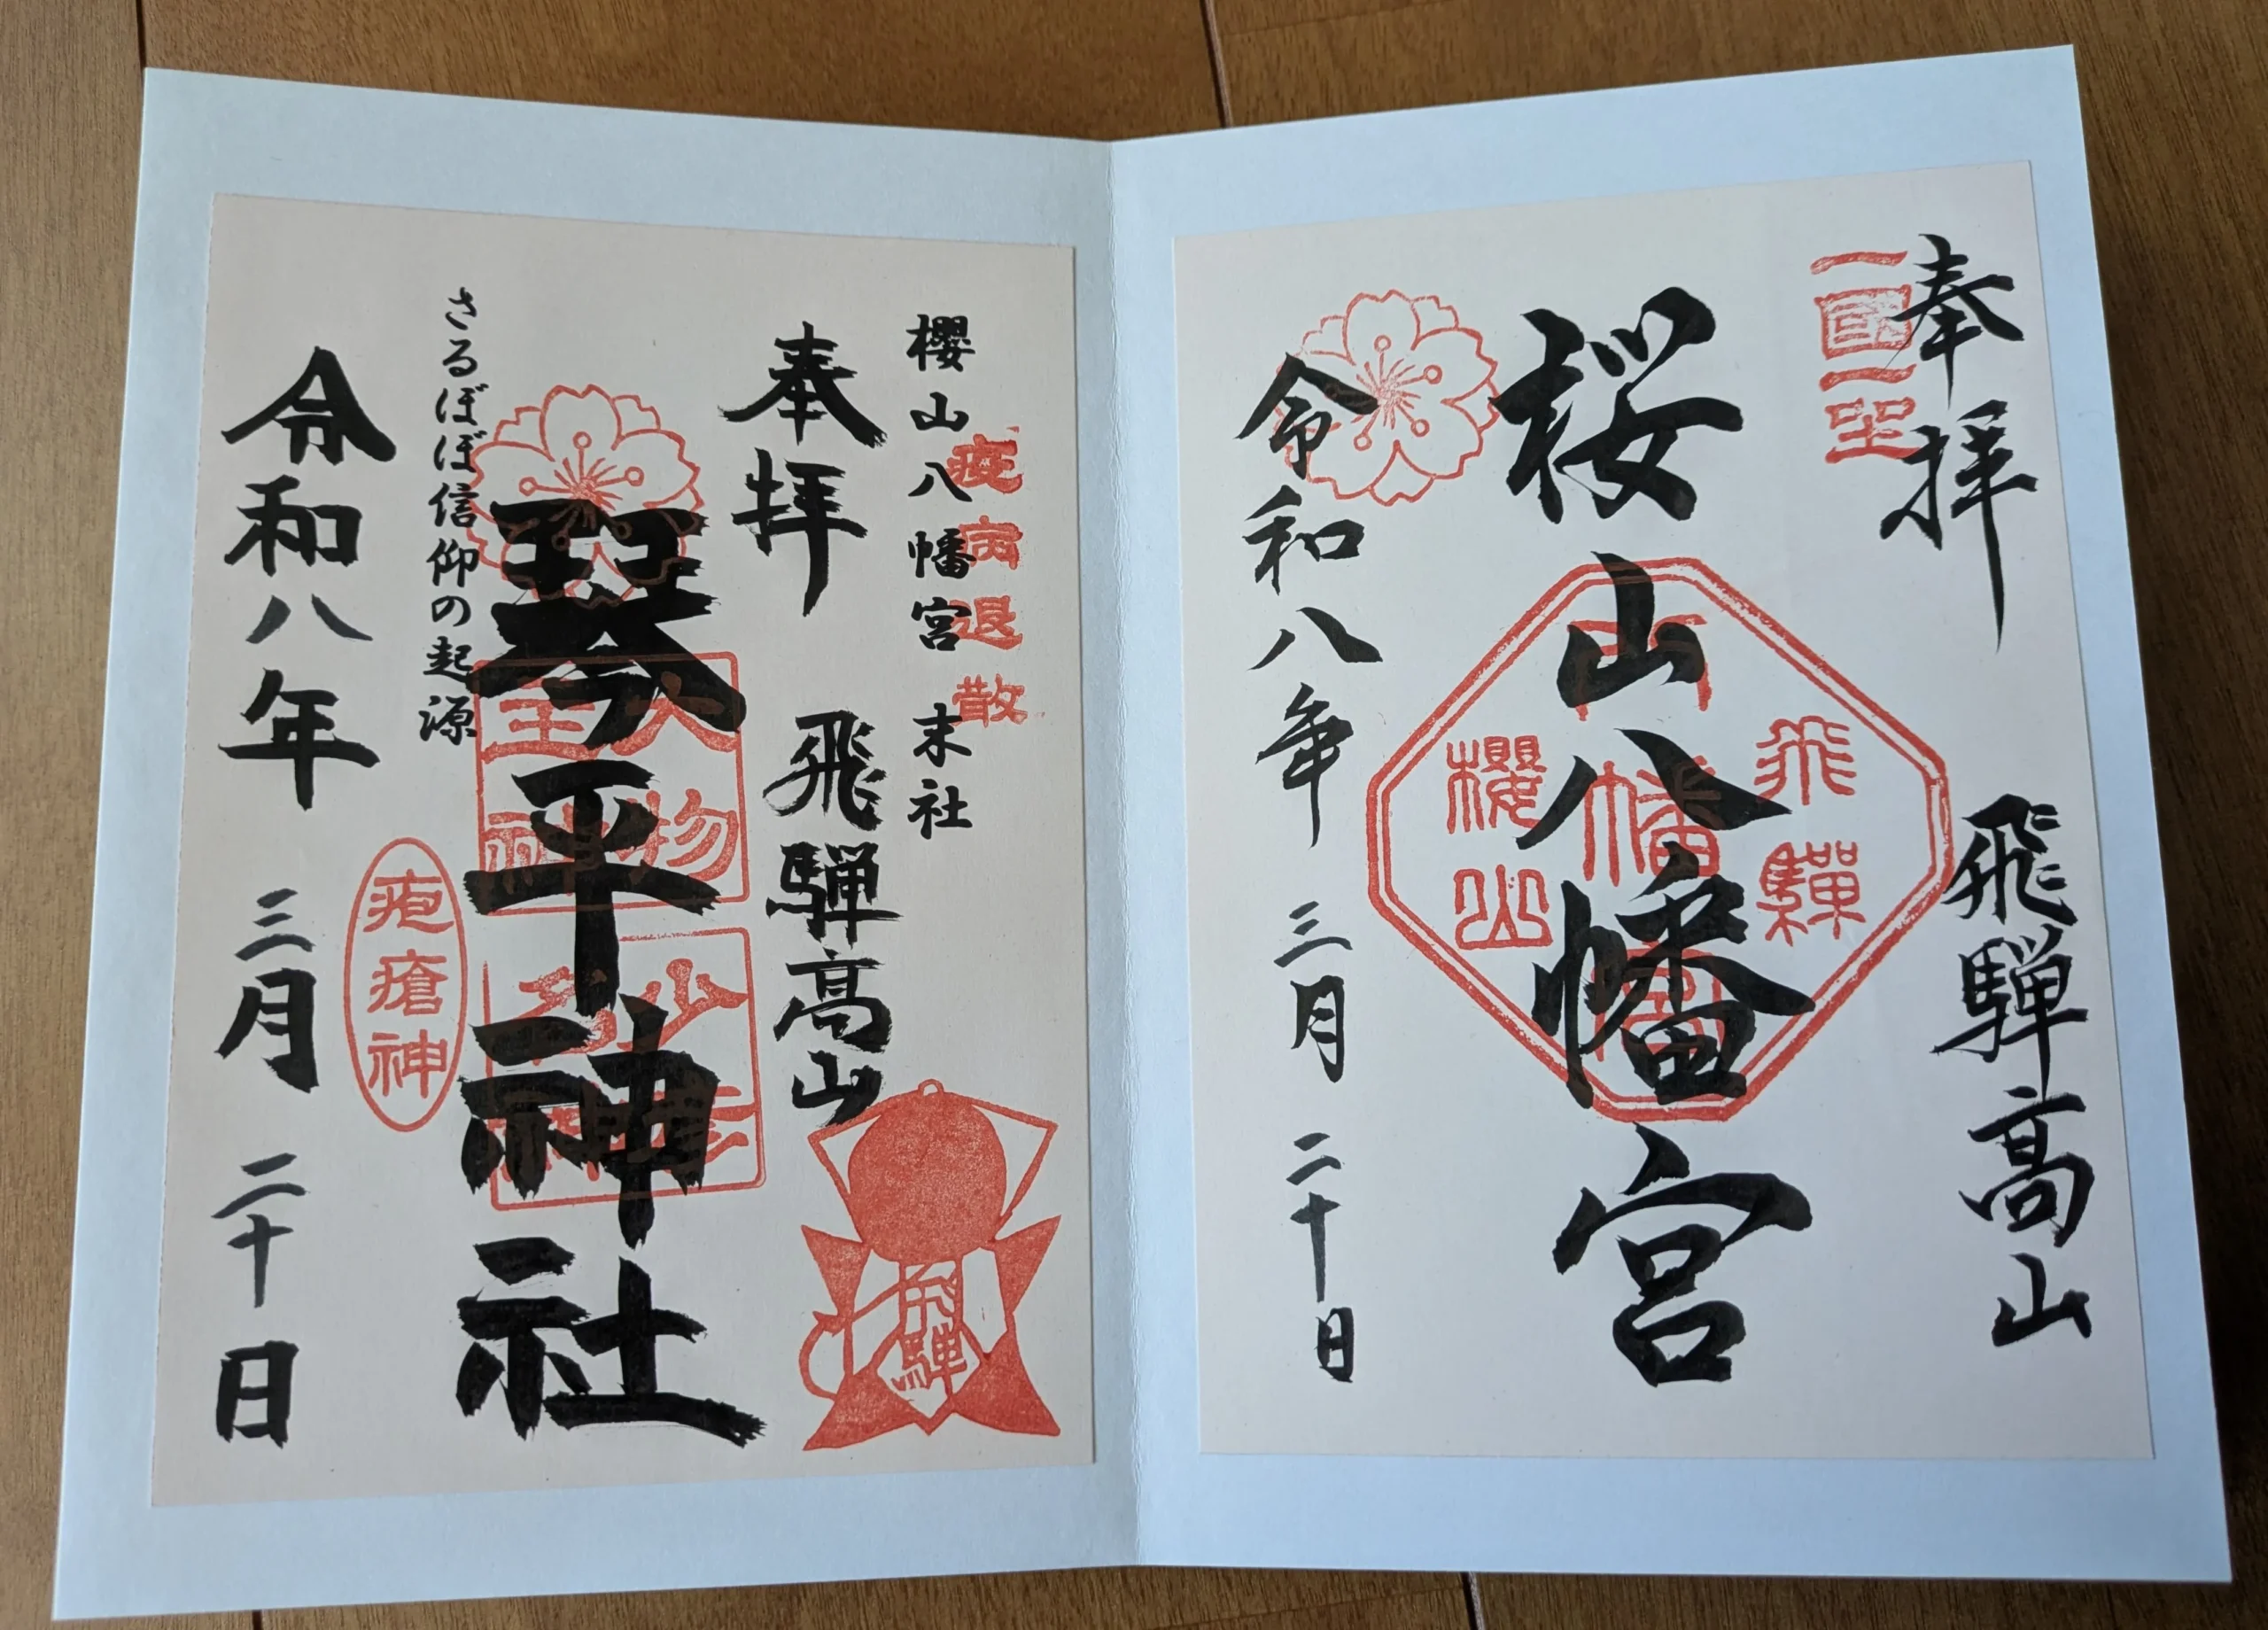 奉拝
飛騨高山
一国一社
桜山八幡宮
飛騨
八幡宮
櫻山
令和八年 三月 二十日
疫病退散
櫻山八幡宮 末社
奉拝 飛騨高山
飛騨
琴平神社
大物主神
少彦名神
さるぼぼ信仰の起源
疱瘡神
令和八年 三月 二十日